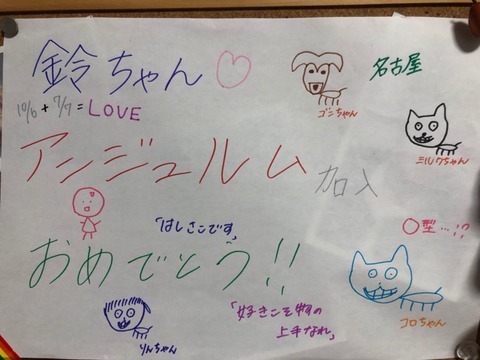 鈴ちゃん♡
名古屋
ゴンちゃん
10/6 + 7/7 = LOVE
ミルクちゃん
アンジュルム
加入
「はしさこです」
○型…!?
おめでとう!!
りんちゃん
「好きこそ物の
上手なれ」
コロちゃん